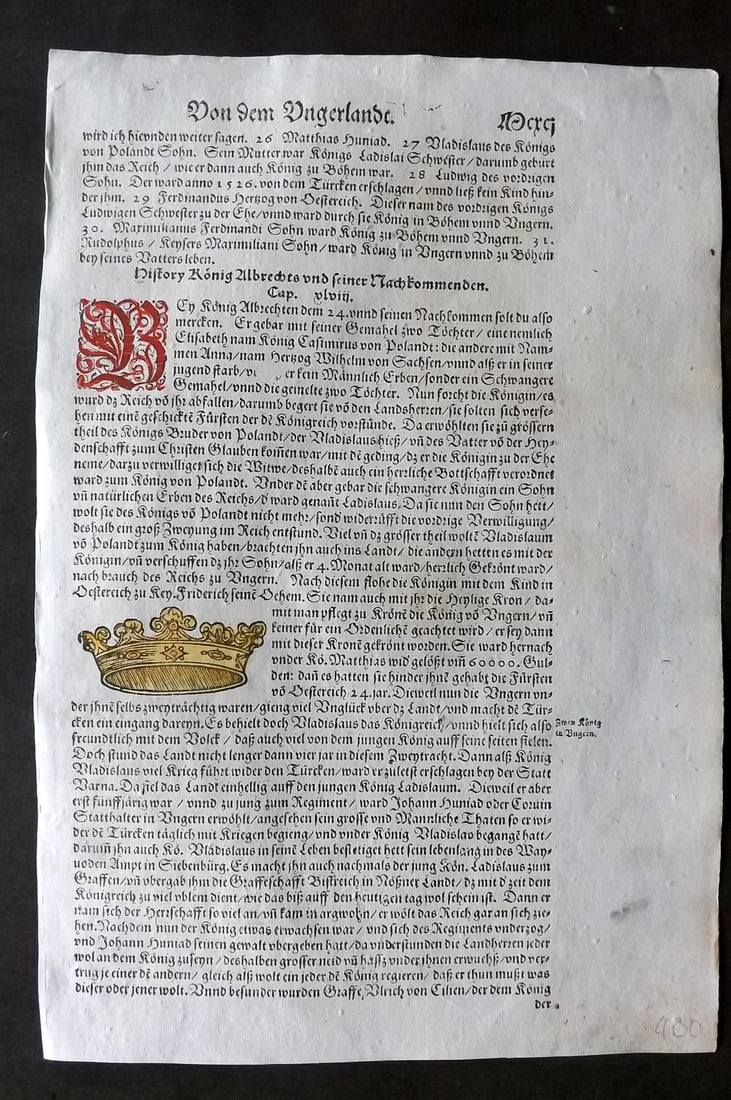 Von dem Ungerlande.
Mcxcj
wird ich hievnden weiter sagen. 26 Matthias Huniad. 27 Vladislaus des Königs
von Polandt Sohn. Sein Mutter war Königs Ladislai Schwester / darumb gebürt
jhm das Reich / wie er dann auch König zu Böhem war. 28 Ludwig des vordrigen
Sohn. Der ward anno 1526. von dem Türcken erschlagen / vnnd ließ kein Kind hin-
der jhm. 29 Ferdinandus Hertzog von Oesterreich. Dieser nam des vordrigen Königs
Ludwigen Schwester zu der Ehe / vnnd ward durch sie König in Böhem vnnd Vngern.
30. Maximilianus Ferdinandi Sohn ward König zu Böhem vnnd Vngern. 31.
Rudolphus / Keysers Maximiliani Sohn / ward König in Vngern vnnd zu Böhem
bey seines Vatters leben.
History König Albrechts vnd seiner Nachkommenden.
Cap. xlviij.
BEy König Albrechten dem 24. vnnd seinen Nachkommen solt du also
mercken. Er gebar mit seiner Gemahel zwo Töchter / eine nemlich
Elisabeth nam König Casimirus von Polandt: die andere mit Nam-
men Anna / nam Hertzog Wilhelm von Sachsen / vnnd alß er in seiner
jugend starb / er kein Männlich Erben / sonder ein Schwangere
Gemahel / vnnd die gemelte zwo Töchter. Nun forcht die Königin / es
wurd dz Reich võ jhr abfallen / darumb begert sie võ den Landsherren / sie solten sich verse-
hen mit einẽ geschicktẽ Fürsten der dẽ Königreich vorstünde. Da erwöhlten sie zũ grössern
theil des Königs Bruder von Polandt / der Vladislaus hieß / vñ des Vatter võ der Hey-
denschafft zum Christen Glauben kom̃en war / mit dẽ geding / dz er die Königin zu der Ehe
neme / darzu verwilliget sich die Witwe / deshalbẽ auch ein herrliche Bottschafft verordnet
ward zum König von Polandt. Vnder dẽ aber gebar die schwangere Königin ein Sohn
vñ natürlichen Erben des Reichs / ď ward genañt Ladislaus. Da sie nun den Sohn hett /
wolt sie des Königs võ Polandt nicht mehr / sonď widerrüfft die vordrige Verwilligung /
deshalb ein groß Zweyung im Reich entstund. Viel vñ dz grösser theil woltẽ Vladislaum
võ Polandt zum König haben / brachten jhn auch ins Landt / die andern hetten es mit der
Königin / vñ verschuffen dz jhr Sohn / alß er 4. Monat alt ward / herrlich Gekrönt ward /
nach brauch des Reichs zu Vngern. Nach diesem flohe die Königin mit dem Kind in
Oesterreich zu Key. Friderich seinẽ Oehem. Sie nam auch mit jhr die Heylige Kron / da-
mit man pflegt zu Krönẽ die König võ Vngern / vñ
keiner für ein Ordenlichẽ geachtet wird / er sey dann
mit dieser Kronẽ gekrönt worden. Sie ward hernach
vnder Kö. Matthias wiď gelößt vm̃ 60000. Gul-
den: dañ es hatten sie hinder jhnẽ gehabt die Fürsten
võ Oesterreich 24. jar. Dieweil nun die Vngern vn-
der jhnẽ selbs zweyträchtig waren / gieng viel Vnglück vber dz Landt / vnd macht dẽ Tür-
cken ein eingang dareyn. Es behielt doch Vladislaus das Königreich / vnnd hielt sich also
freundtlich mit dem Volck / daß auch viel von dem jungen König auff seine seiten fielen.
Zwen König
in Vngern.
Doch stund das Landt nicht lenger dann vier jar in diesem Zweytracht. Dann alß König
Vladislaus viel Krieg führt wider den Türcken / ward er zuletst erschlagen bey der Statt
Varna. Da fiel das Landt einhellig auff den jungen König Ladislaum. Dieweil er aber
erst fünffjärig war / vnnd zu jung zum Regiment / ward Johann Huniad oder Coruin
Statthalter in Vngern erwöhlt / angesehen sein grosse vnd Mannliche Thaten so er wi-
der dẽ Türcken täglich mit Kriegen begieng / vnd vnder König Vladislao begangẽ hatt /
darum̃ jhn auch Kö. Vladislaus in seinẽ Leben bestetiget hett sein lebenlang in des Way-
uoden Ampt in Siebenbürg. Es macht jhn auch nachmals der jung Kön. Ladislaus zum
Graffen / vñ vbergab jhm die Graffeschafft Bistreich in Nößner Landt / dz mit ď zeit dem
Königreich zu viel vblem dient / wie das biß auff den heutigen tag wol schein ist. Dann er
nam sich der Herrschafft so viel an / vñ kam in argwohn / er wölt das Reich gar an sich zie-
hen. Nachdem nun der König etwas erwachsen war / vnd sich des Regiments vnderzog /
vnd Johann Huniad seinen gewalt vbergeben hatt / da vnderstunden die Landherren jeder
wol an dem König zuseyn / deshalben grosser neid vñ hassz vnder jhnen erwuchß / vnd ver-
trug je einer dẽ andern / gleich alß wolt ein jeder dẽ König regieren / daß er thun mußt was
dieser oder jener wolt. Vnnd besunder wurden Graffe / Vlrich von Cilien / der dem König
der
480